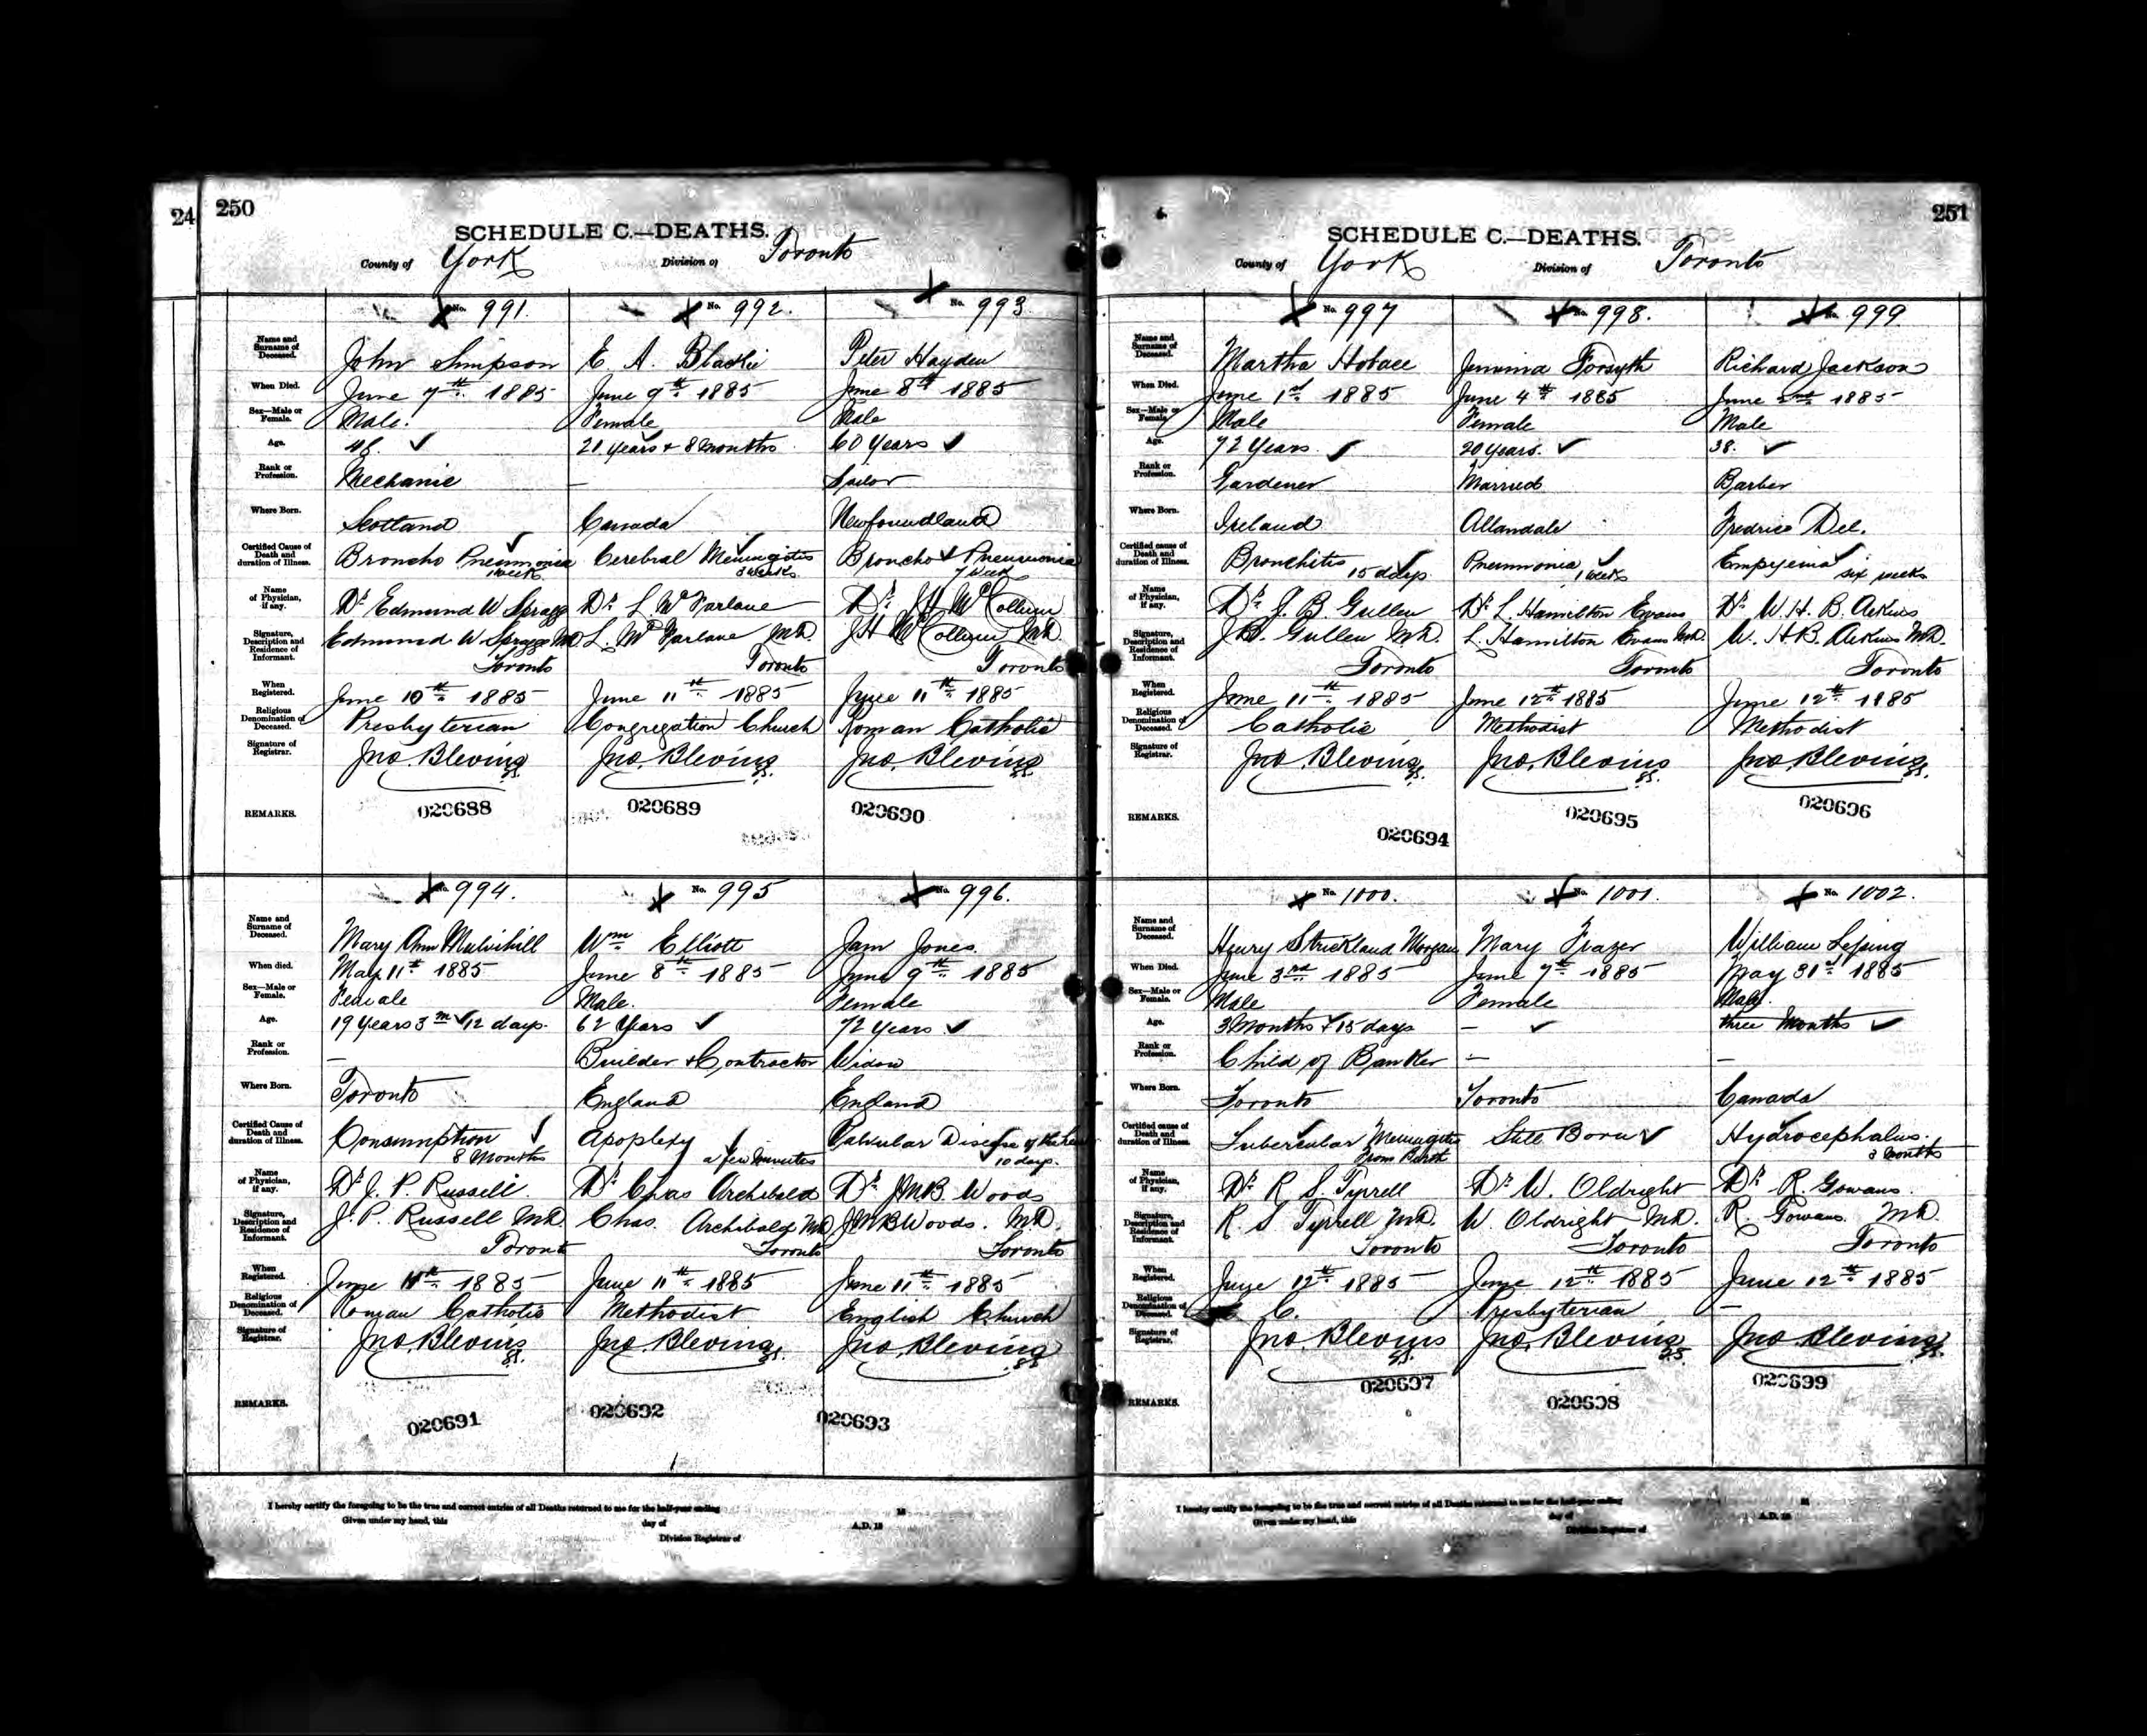 24
250
SCHEDULE C.—DEATHS.
County of York Division of Toronto
No. 991. No. 992. No. 993
Name and Surname of Deceased. John Simpson E. A. Blackie Peter Hayden
When Died. June 7th 1885 June 9th 1885 June 8th 1885
Sex—Male or Female. Male. Female Male
Age. 48. 21 years + 8 Months 60 Years
Rank or Profession. Mechanic — Sailor
Where Born. Scotland Canada Newfoundland
Certified Cause of Death and duration of Illness. Broncho Pneumonia 1 week Cerebral Meningitis 3 weeks Broncho Pneumonia 1 Week
Name of Physician, if any. Dr Edmund W Spragg Dr L McFarlane Dr JH McCollum
Signature, Description and Residence of Informant. Edmund W Spragge MD. L. McFarlane MD. JH McCollum MD.
Toronto Toronto Toronto
When Registered. June 10th 1885 June 11th 1885 June 11th 1885
Religious Denomination of Deceased. Presbyterian Congregation Church Roman Catholic
Signature of Registrar. Jno. Blevins Jno. Blevins Jno. Blevins
REMARKS. 020688 020689 020690
No. 994. No. 995 No. 996.
Name and Surname of Deceased. Mary Ann Mulvihill Wm Elliott Jam Jones.
When died. May 11th 1885 June 8th 1885 June 9th 1885
Sex—Male or Female. Female Male. Female
Age. 19 Years 3m 12 days. 62 Years 72 Years
Rank or Profession. — Builder + Contractor Widow
Where Born. Toronto England England
Certified Cause of Death and duration of Illness. Consumption 8 Months Apoplexy a few Minutes Valvular Disease of the 10 days.
Name of Physician, if any. Dr J. P. Russell. Dr Chas Archibald Dr JMB Woods
Signature, Description and Residence of Informant. J. P. Russell MD. Chas. Archibald MD JMB Woods. MD.
Toronto Toronto Toronto
When Registered. June 11th 1885 June 11th 1885 June 11th 1885
Religious Denomination of Deceased. Roman Catholic Methodist English Church
Signature of Registrar. Jno. Blevins Jno. Blevins Jno. Blevins
REMARKS. 020691 020692 020693
I hereby certify the foregoing to be the true and correct entries of all Deaths returned to me for the half-year ending 18
Given under my hand, this day of A.D. 18
Division Registrar of
251
SCHEDULE C.—DEATHS.
County of York Division of Toronto
No. 997 No. 998. No. 999
Name and Surname of Deceased. Martha Jemima Forsyth Richard Jackson
When Died. June 1st 1885 June 4th 1885 June 2nd 1885
Sex—Male or Female. Male Female Male
Age. 72 Years 20 Years. 38.
Rank or Profession. Gardener Married Barber
Where Born. Ireland Allandale Fredrica Del.
Certified cause of Death and duration of Illness. Bronchitis 15 days Pneumonia 1 week Empyema six weeks
Name of Physician, if any. Dr J. B. Gullen Dr L. Hamilton Evans Dr W. H. B. Aikins
Signature, Description and Residence of Informant. J B. Gullen MD. L. Hamilton Evans MD. W. H.B. Aikins MD.
Toronto Toronto Toronto
When Registered. June 11th 1885 June 12th 1885 June 12th 1885
Religious Denomination of Deceased. Catholic Methodist Methodist
Signature of Registrar. Jno. Blevins Jno. Blevins Jno. Blevins
REMARKS. 020694 020695 020696
No. 1000. No. 1001. No. 1002.
Name and Surname of Deceased. Henry Strickland Morgan Mary Frazer William
When Died. June 3rd 1885 June 7th 1885 May 31st 1885
Sex—Male or Female. Male Female Male.
Age. 3 Months + 15 days — three Months
Rank or Profession. Child of Banker — —
Where Born. Toronto Toronto Canada
Certified cause of Death and duration of Illness. Tubercular Meningitis From Birth Still Born Hydrocephalus. 3 months
Name of Physician, if any. Dr R. S. Tyrrell Dr W. Oldright Dr R. Gowans.
Signature, Description and Residence of Informant. R. S Tyrrell MD. W. Oldright MD. R. Gowans. MD.
Toronto Toronto Toronto
When Registered. June 12th 1885 June 12th 1885 June 12th 1885
Religious Denomination of Deceased. C. Presbyterian —
Signature of Registrar. Jno Blevins Jno. Blevins Jno Blevins
REMARKS. 020697 020698 020699
I hereby certify the foregoing to be the true and correct entries of all Deaths returned to me for the half-year ending 18
Given under my hand, this day of A.D. 18
Division Registrar of